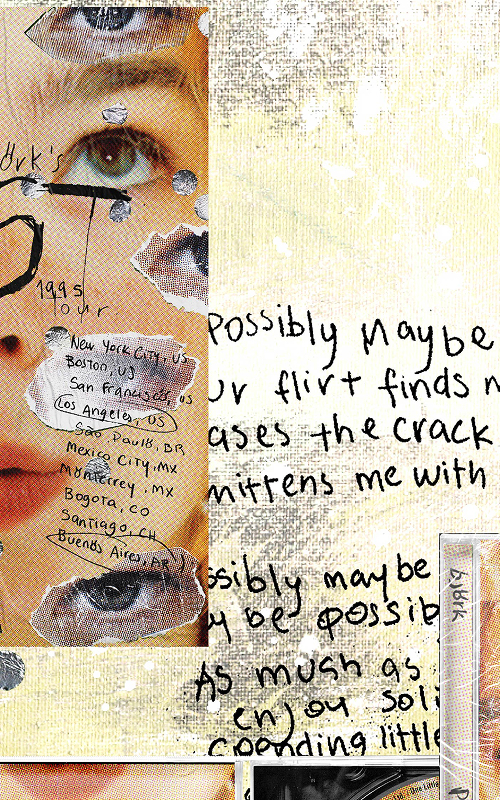 örk's
1995
Tour
New York City, US
Boston, US
San Francisco, US
Los Angeles, US
São Paulo, BR
Mexico City, MX
Monterrey, MX
Bogota, CO
Santiago, CH
Buenos Aires, AR
Possibly Maybe
ur flirt finds
ases the crack
mittens me with
ssibly maybe
y be possib
As much as
enjoy soli
spending little
björk